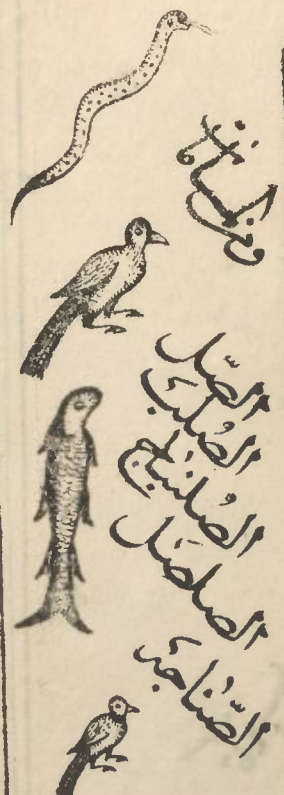 الصّل
الصُلَبُ
الصُلنباج
الصلصَل
الصُّناجة